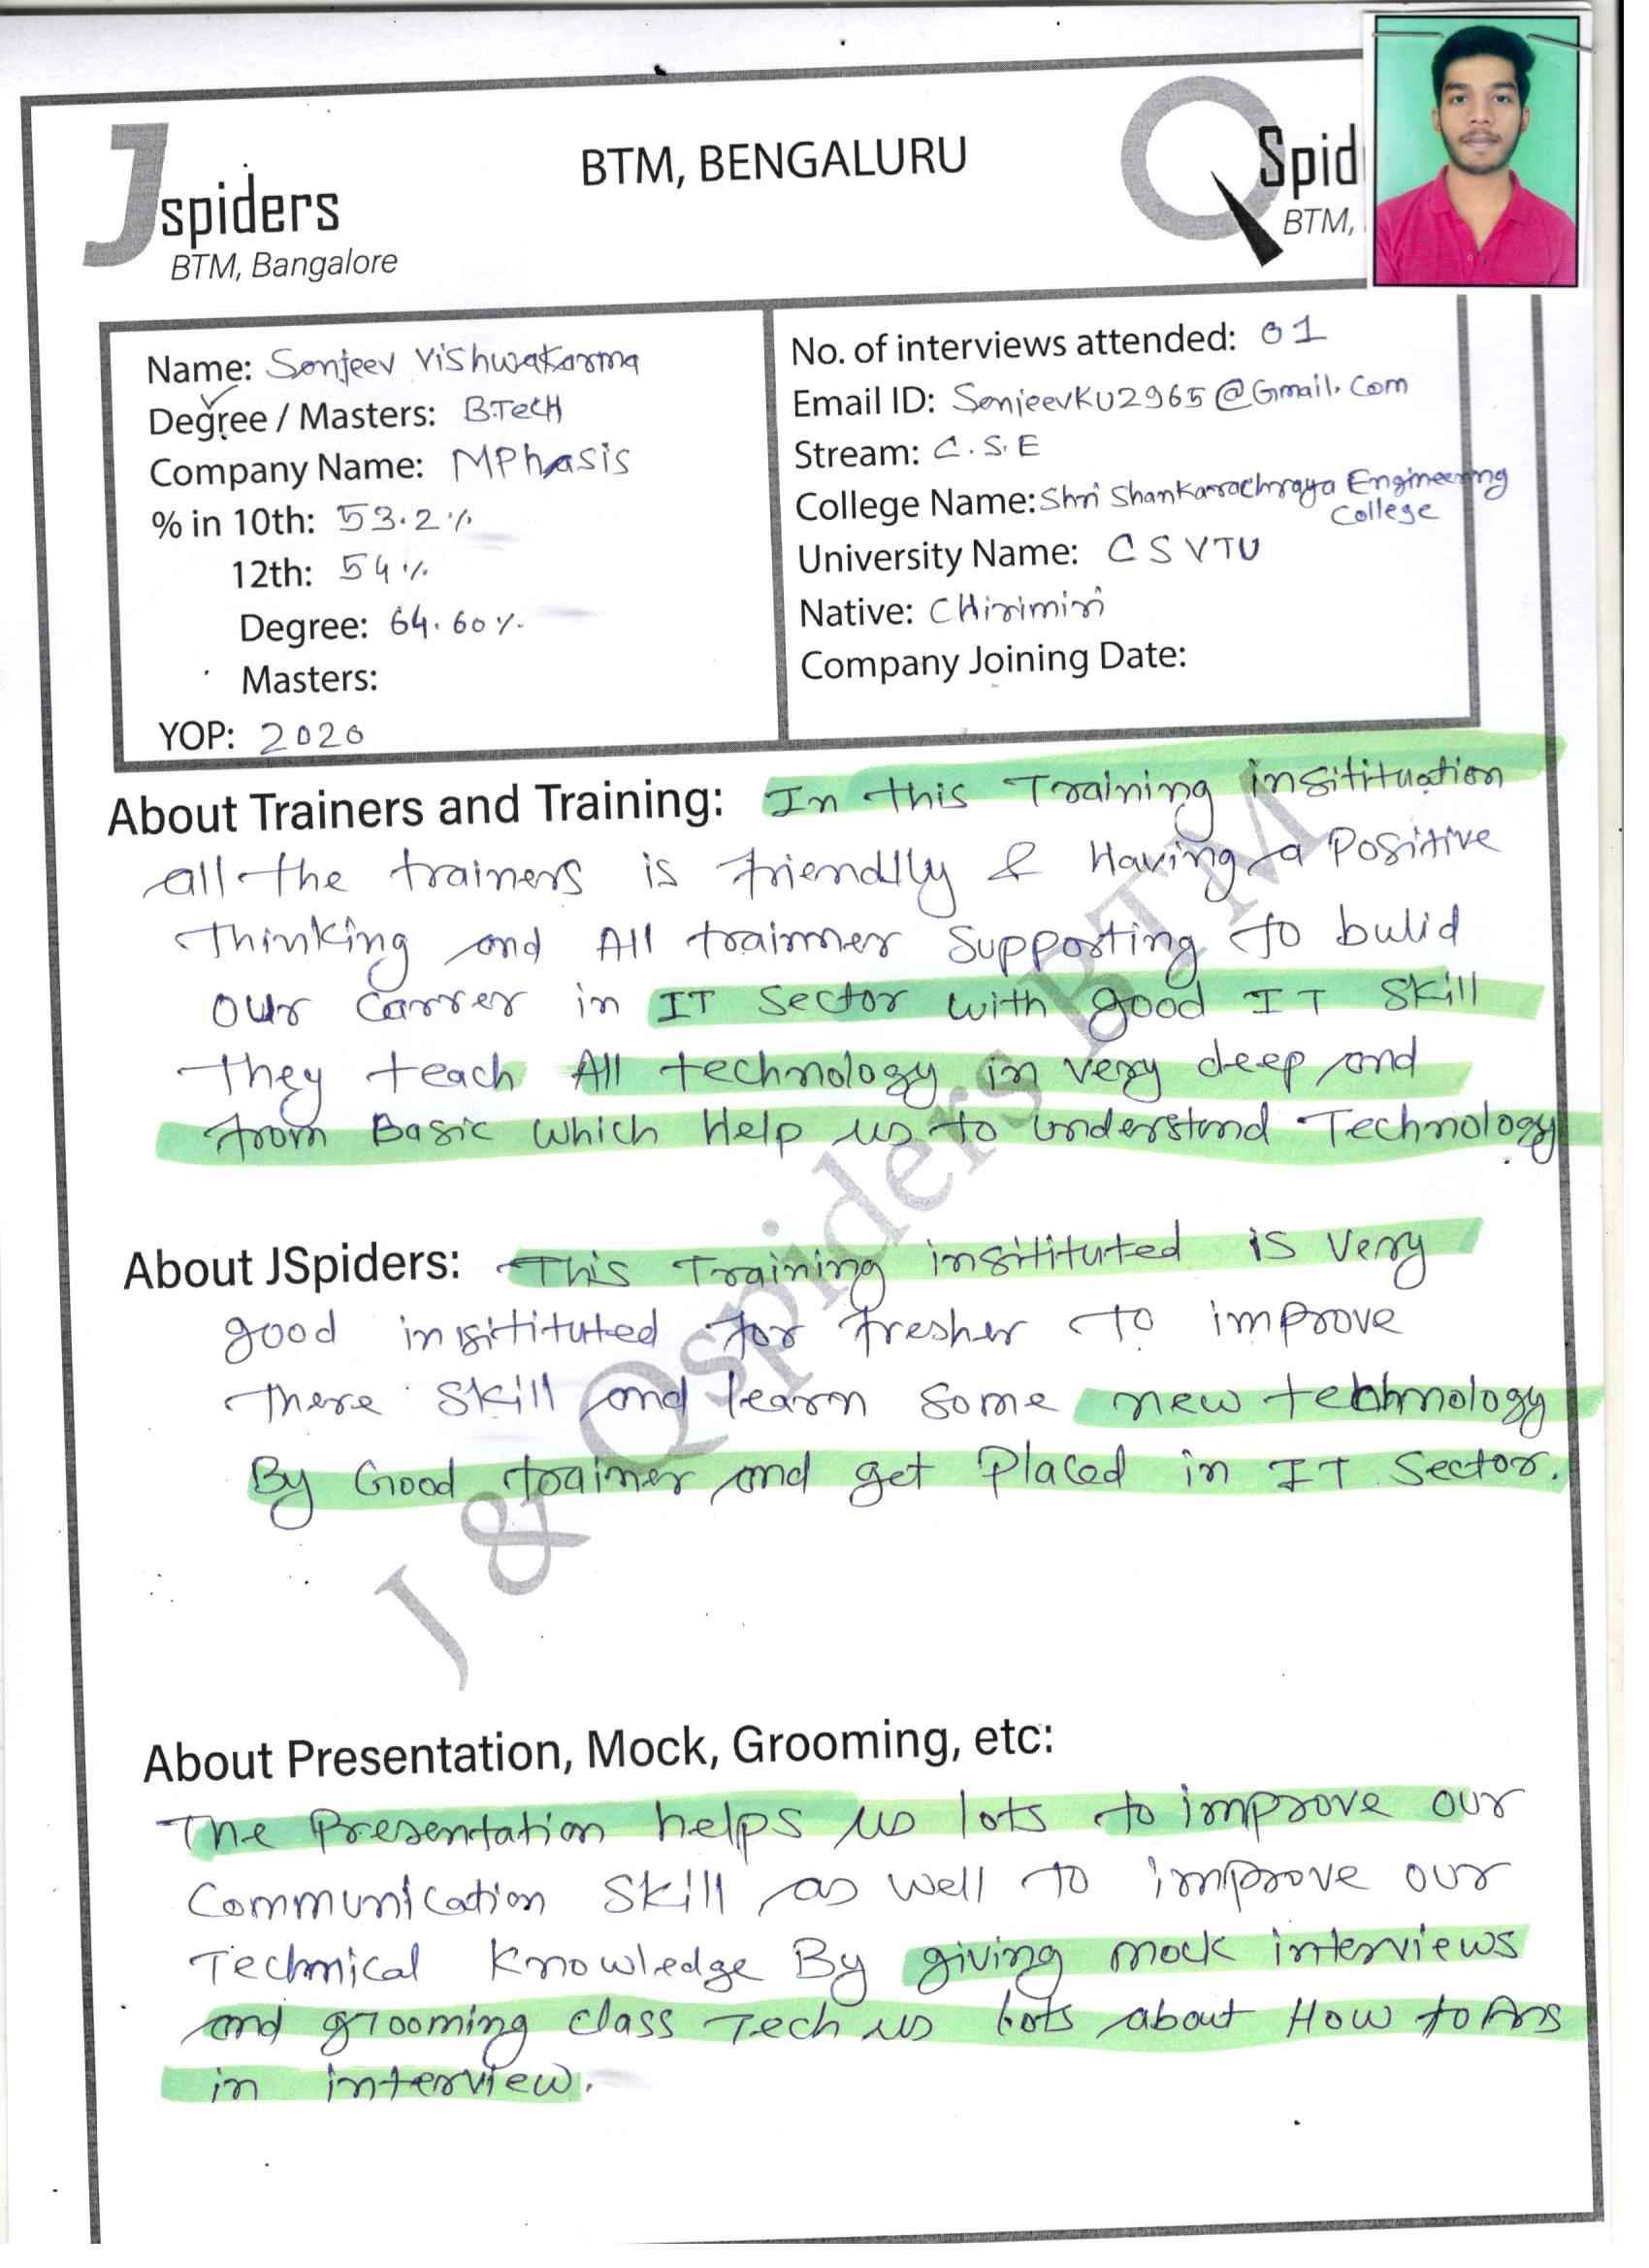 Jspiders
BTM, Bangalore
BTM, BENGALURU
QSpid
BTM,
Name: Sanjeev Vishwakarma
Degree / Masters: B.Tech
Company Name: MPhasis
% in 10th: 53.2%
12th: 54%
Degree: 64.60%
Masters:
YOP: 2020
No. of interviews attended: 01
Email ID: SanjeevKU2965@Gmail.Com
Stream: C.S.E
College Name: Shri Shankarachraya Engineering
College
University Name: CSVTU
Native: CHirimiri
Company Joining Date:
About Trainers and Training: In this Training insitituation
all the trainers is friendlly & Having a Positive
Thinking and All trainner Supporting to bulid
our Carrer in IT Sector with good IT Skill
They teach All technology in very deep and
from Basic which Help us to understand Technology
About JSpiders: This Training insitituted is very
good insitituted for fresher to improve
there Skill and learn some new technology
By Good trainer and get Placed in IT Sector.
About Presentation, Mock, Grooming, etc:
The Presentation helps us lots to improve our
Communication Skill as well to improve our
Technical Knowledge By giving mock interviews
and grooming class Tech us lots about How to Ans
in interview.
J & Qspiders BTM